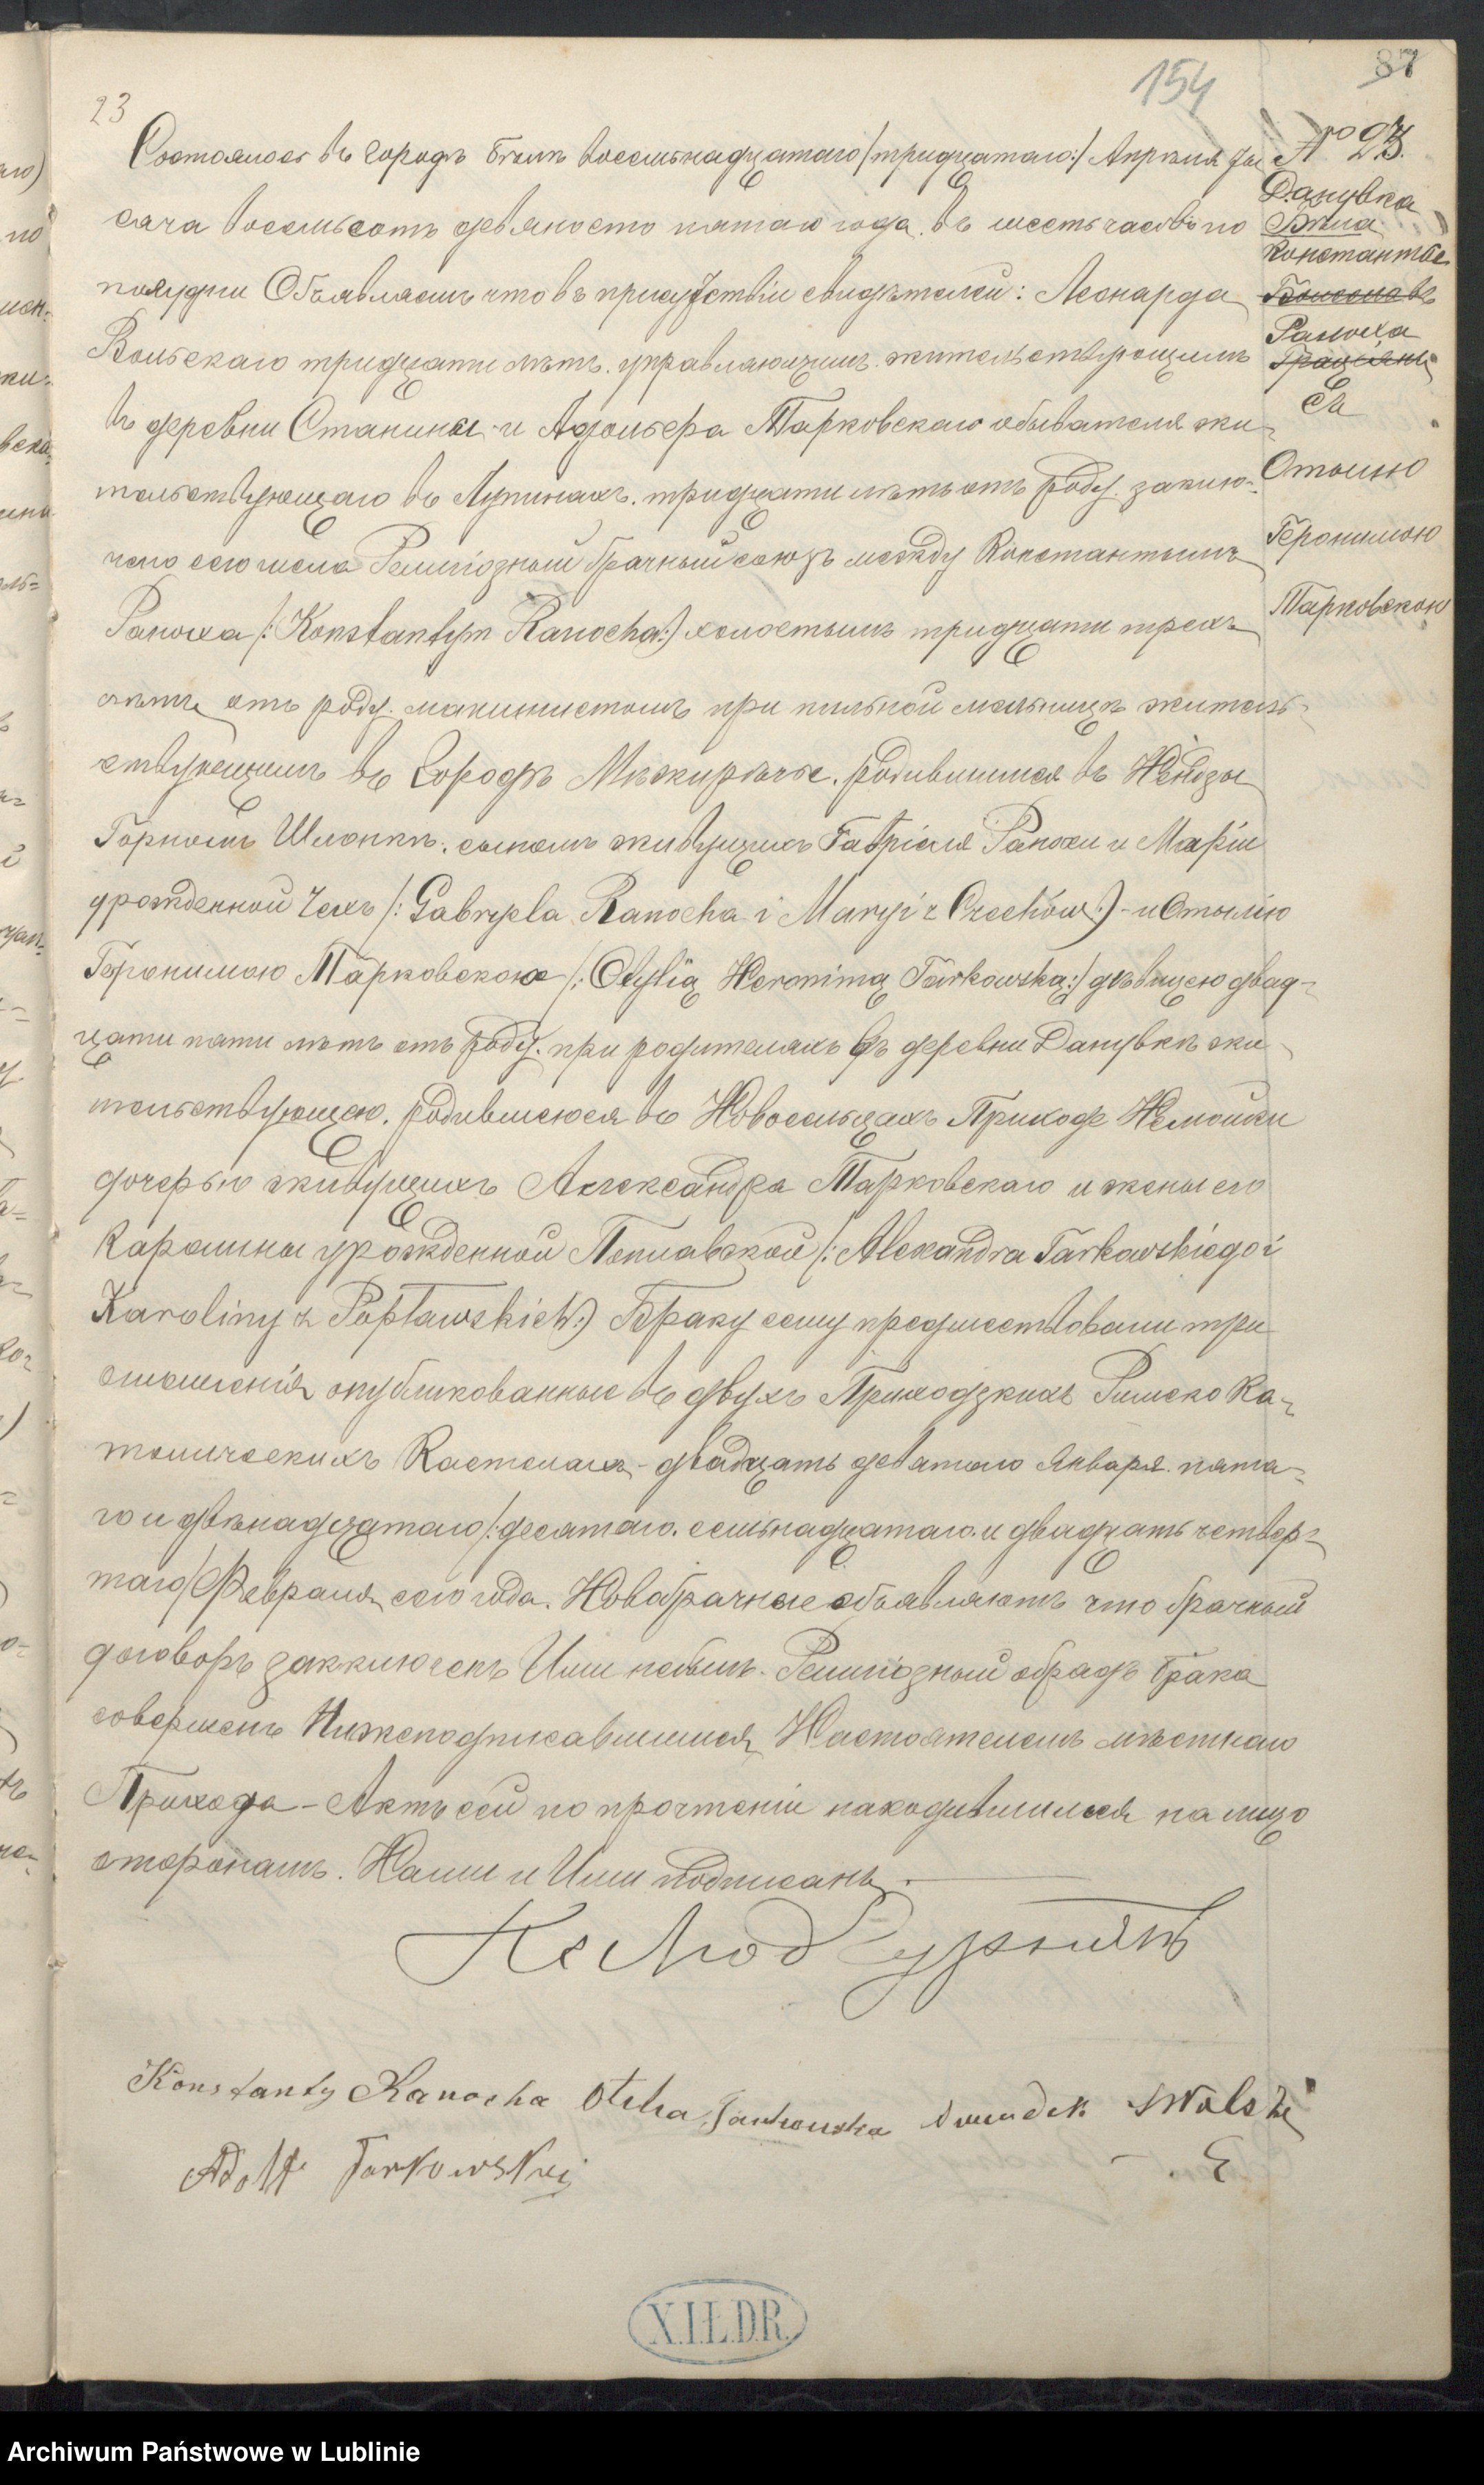 154
87
23
№ 23.
Данувка
Бѣла
Константы
Раноха
съ
Отылiю
Геронимою
Тарковскою
Состоялось въ городѣ Бѣлѣ восемьнадцатаго /тридцатаго:/ Апрѣля ты
сяча восемьсотъ девяносто пятаго года. въ шесть часовъ по
полудни Объявляемъ что въ присутствiи свидѣтелей: Леонарда
Вольскаго тридцати лѣтъ. управляющимъ. жительствующимъ
въ деревни Станины и Адольфа Тарковскаго обывателя жи-
тельствующаго въ Лупинахъ. тридцати лѣтъ отъ роду. заклю-
чено сего числа Религiозный брачный союзъ между Константымъ
Раноха /:Konstantym Ranocha:/ холостымъ тридцати трехъ
лѣтъ отъ роду. машинистомъ при пильной мельницѣ житель-
ствующимъ въ Городѣ Мѣжирѣчье. родившимся въ Нендзы
Горномъ Шлонкѣ. сыномъ живущихъ Габрiеля Ранохи и Марiи
урожденной Чехъ /:Gabryela Ranocha i Maryi z Czechów:/ - и Отылiю
Геронимою Тарковскою /:Otylią Heronimą Tarkowską:/ дѣвицею двад-
цати пяти лѣтъ отъ роду. при родителяхъ въ деревни Данувкѣ жи-
тельствующею. родившеюся въ Новосельцахъ Приходѣ Немойки
дочерью живущихъ Александра Тарковскаго и жены его
Каролины урожденной Поплавской /:Alexandra Tarkowskiego i
Karoliny z Popławskich:/ Браку сему предшествовали три
оглашенiя опубликованные въ двухъ Приходзкихъ Римско Ка-
толическихъ Костелахъ - двадцать девятаго Января. пята-
го и двѣнадцатаго /:десятаго. семьнадцатаго. и двадцать четвер-
таго/ Февраля сего года. Новобрачные объявляютъ что брачный
договоръ заключенъ Ими небылъ. Религiозный обрадъ брака
совершенъ Нижеподписавшимся Настоятелемъ мѣстнаго
Прихода - Актъ сей по прочтенiи находившимся на лицо
сторонамъ. Нами и Ими подписанъ.
Konstanty Ranocha Otelia Tarkowska Wolski
Adolf Tarkowski
X.I.Ł.D.R.
Archiwum Państwowe w Lublinie